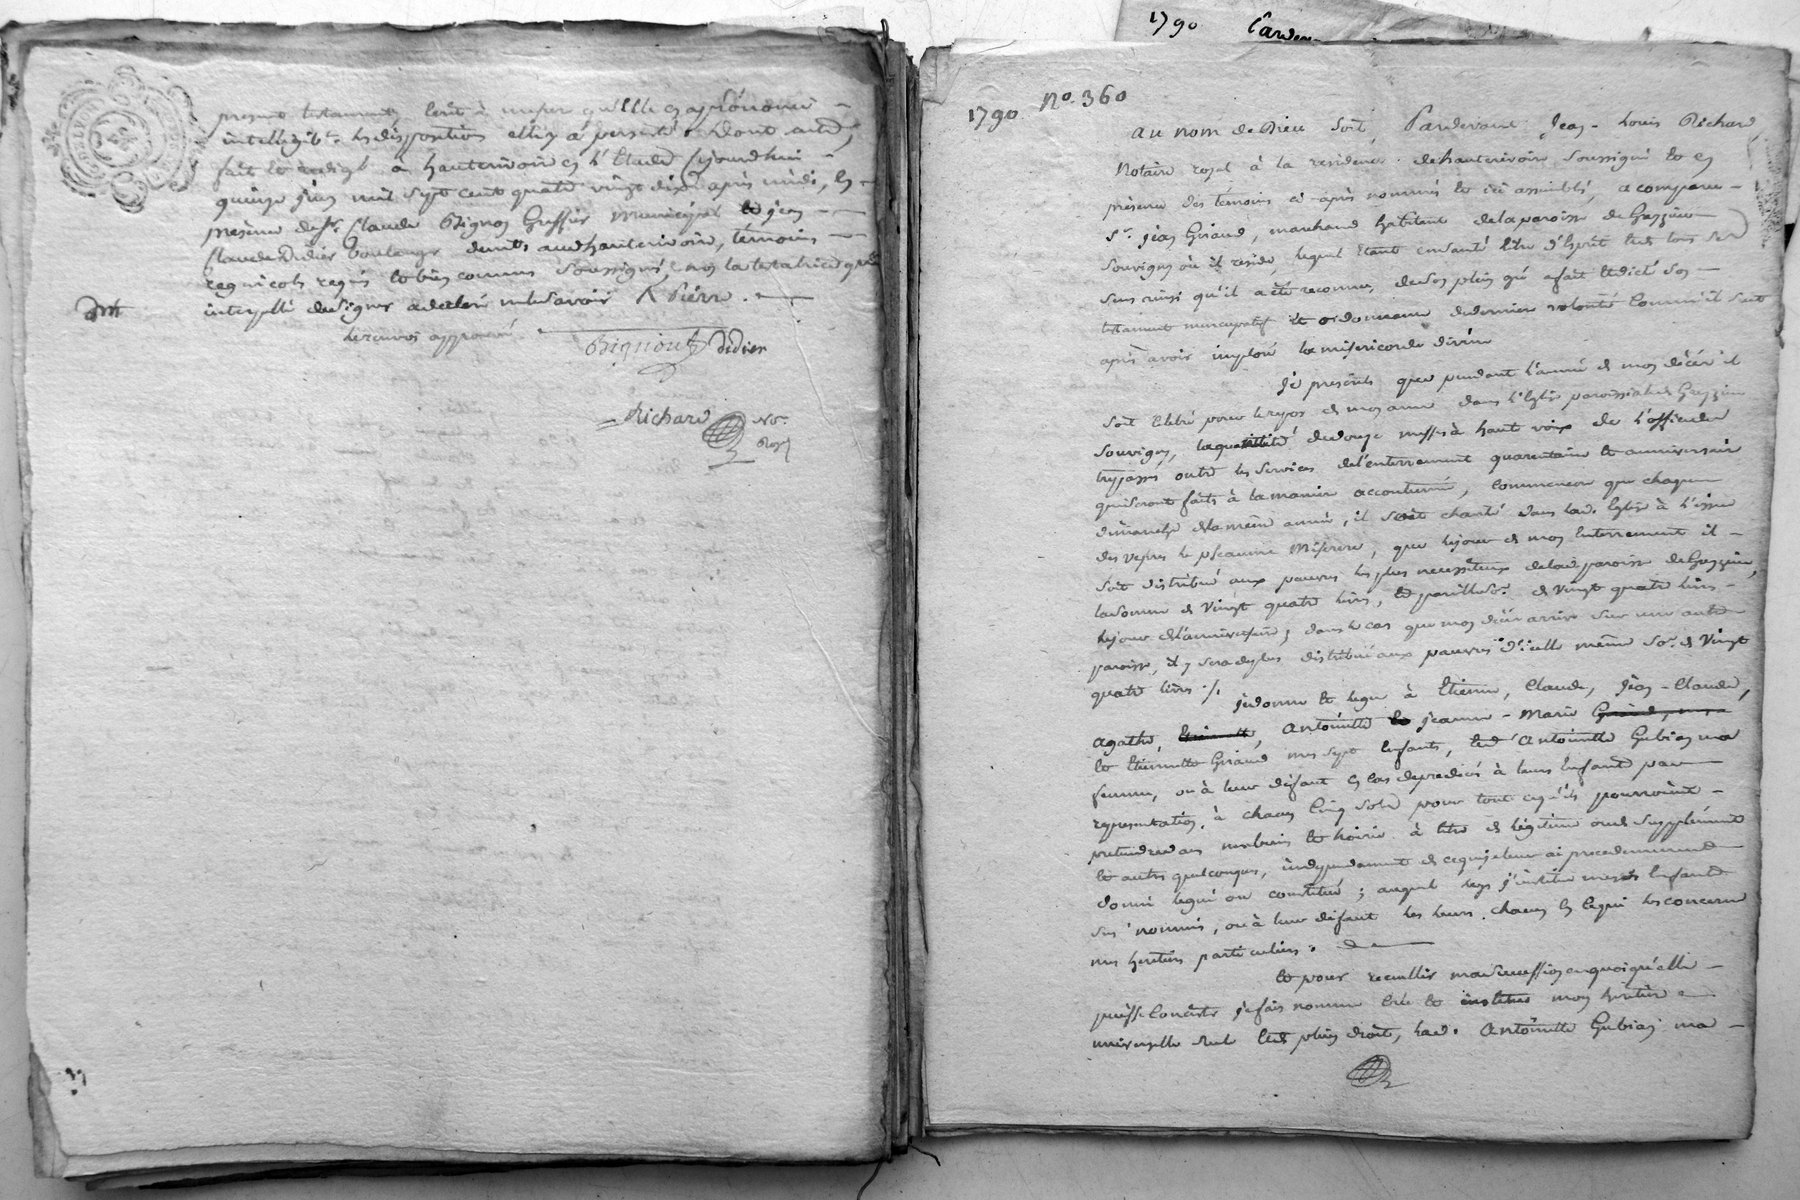 present testament, leüe à
intelligible les dispositions elle y a persisté. Dont acte,
fait et rédigé à hauterivoire en l'Etude cejourdhui
quinze juin mil sept cent quatre vingt dix après midi, En
présence de Sr. Claude Pignon Greffier municipal et jean
Claude Didier boulanger demts. aud hauterivoire, témoins
requis et bien connus Soussignés, non la testatrice qui
interpellé de signer a declaré ne le savoir
approuvé
Didier
Richard No.
Royal
1790 Carden
1790
No. 360
au nom de Dieu Soit, Pardevant Jean-Louis Richard,
Notaire royal à la residence de hauterivoire soussigné et en
présence des témoins ci-après nommés et ici assemblés, a comparu
Sr. jean Giraud, marchand habitant de la paroisse de Grezzieu
Souvigny où il reside, lequel étant en santé libre d'Esprit et de tous ses
sens ainsi qu'il a été reconnu, de son plein gré a fait et dicté son
testament nuncupatif et ordonnance de derniere volonté comme il suit
après avoir imploré la misericorde divine
Je prescris que pendant l'année de mon décès il
soit celebré pour le repos de mon ame dans l'Eglise paroissiale de Grezzieu
Souvigny, la quantité de douze messes à haute voix de l'office des
trepassés outre les Services de l'enterrement quarantaine et anniversaire
qui seront faits à la maniere accoutumée, comme encor que chaque
dimanche de la même année, il soit chanté dans lad. Eglise à l'issue
des vepres le pseaume Miserere, que le jour de mon Enterrement il
soit distribué aux pauvres les plus necessiteux de lad paroisse de Grezzieu,
la somme de Vingt quatre livres, et pareille so: de vingt quatre livres
le jour de l'anniversaire; dans le cas que mon décès arrive sur une autre
paroisse, il y sera de plus distribué aux pauvres d'icelle même so: de Vingt
quatre livres ./.
je donne et legue à Etienne, Claude, Jean-Claude,
Agathe, Antoinette jeanne-Marie
et Etiennette Giraud mes sept Enfants, et à Antoinette Gubian ma
femme, ou à leur défaut en cas de predécès à leurs Enfants par
representation, à chacun Cinq Sols pour tout ce qu'ils pourroient
pretendre dans mes biens et hoirie à titre de légitime ou de supplément
et autres quelconques, independament de ce que je leur ai precedemment
donné legué ou constitué; auquel legs j'institue mesd. Enfants
sus nommés, ou à leur défaut les leurs. chacun En ce qui les concerne
mes heritiers particuliers.
et pour recueillir ma Succession en quoi qu'elle
puisse Consister je fais nomme crée et institue mon héritiere
universelle seule et de plein droit, lad. Antoinette Gubian ma